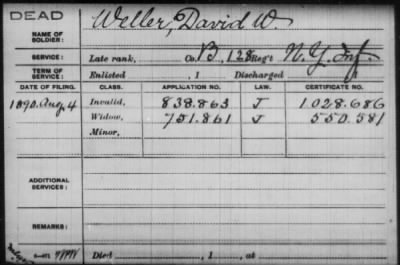 DEAD
Weller, David W.
NAME OF SOLDIER:
SERVICE: Late rank, Co. B, 128 Reg't N.Y. Inf.
TERM OF SERVICE: Enlisted , 1 Discharged
DATE OF FILING. CLASS. APPLICATION NO. LAW. CERTIFICATE NO.
1890. Aug. 4 Invalid, 838.863 J 1.028.686
Widow, 751.861 J 550.581
Minor,
ADDITIONAL SERVICES:
REMARKS:
Died , 1 , at